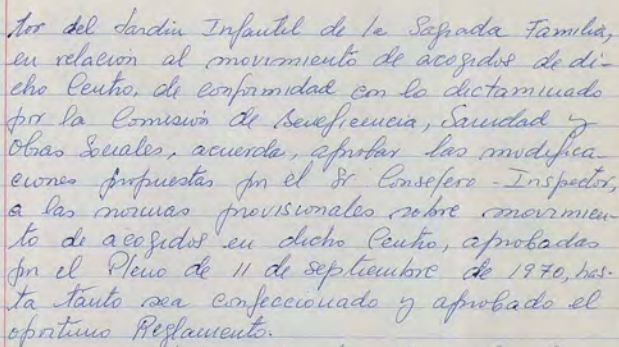 tor del Jardin Infantil de la Sagrada Familia,
en relación al movimiento de acogidos de di-
cho Centro, de conformidad con lo dictaminado
por la Comisión de Beneficencia, Sanidad y
Obras Sociales, acuerda, aprobar las modifica-
ciones propuestas por el Sr Consejero-Inspector,
a las normas provisionales sobre movimien-
to de acogidos en dicho Centro, aprobadas
por el Pleno de 11 de septiembre de 1970, has-
ta tanto sea confeccionado y aprobado el
oportuno Reglamento.